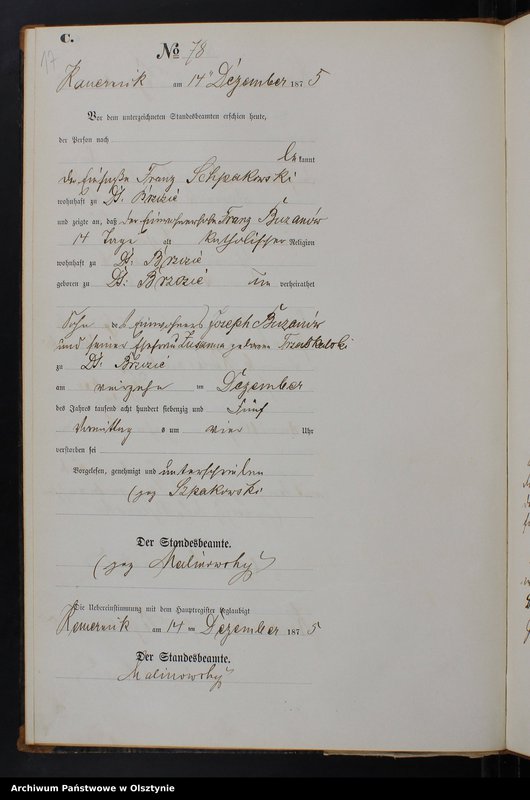 C.
17
No 78
Kauernik am 14 Dezember 1875
Vor dem unterzeichneten Standesbeamten erschien heute,
der Person nach
bekannt
der Franz Schpakowski
wohnhaft zu Dt: Brzozie
und zeigte an, daß der Einwohnersohn Franz Buzanów
14 Tage alt katholischer Religion
wohnhaft zu Dt: Brzozie
geboren zu Dt: Brzozie un verheirathet
Sohn des Einwohners Joseph Buzanów
und seiner Ehefrau geborene
zu Dt: Brzozie
am vierzehn ten Dezember
des Jahres tausend acht hundert siebenzig und Fünf
Vormittag s um vier Uhr
verstorben sei
Vorgelesen, genehmigt und unterschrieben
(gez Szpakowski
Der Standesbeamte.
(gez Malinowsky
Die Uebereinstimmung mit dem Hauptregister beglaubigt
Kauernik am 14 ten Dezember 1875
Der Standesbeamte.
Malinowsky
Archiwum Państwowe w Olsztynie